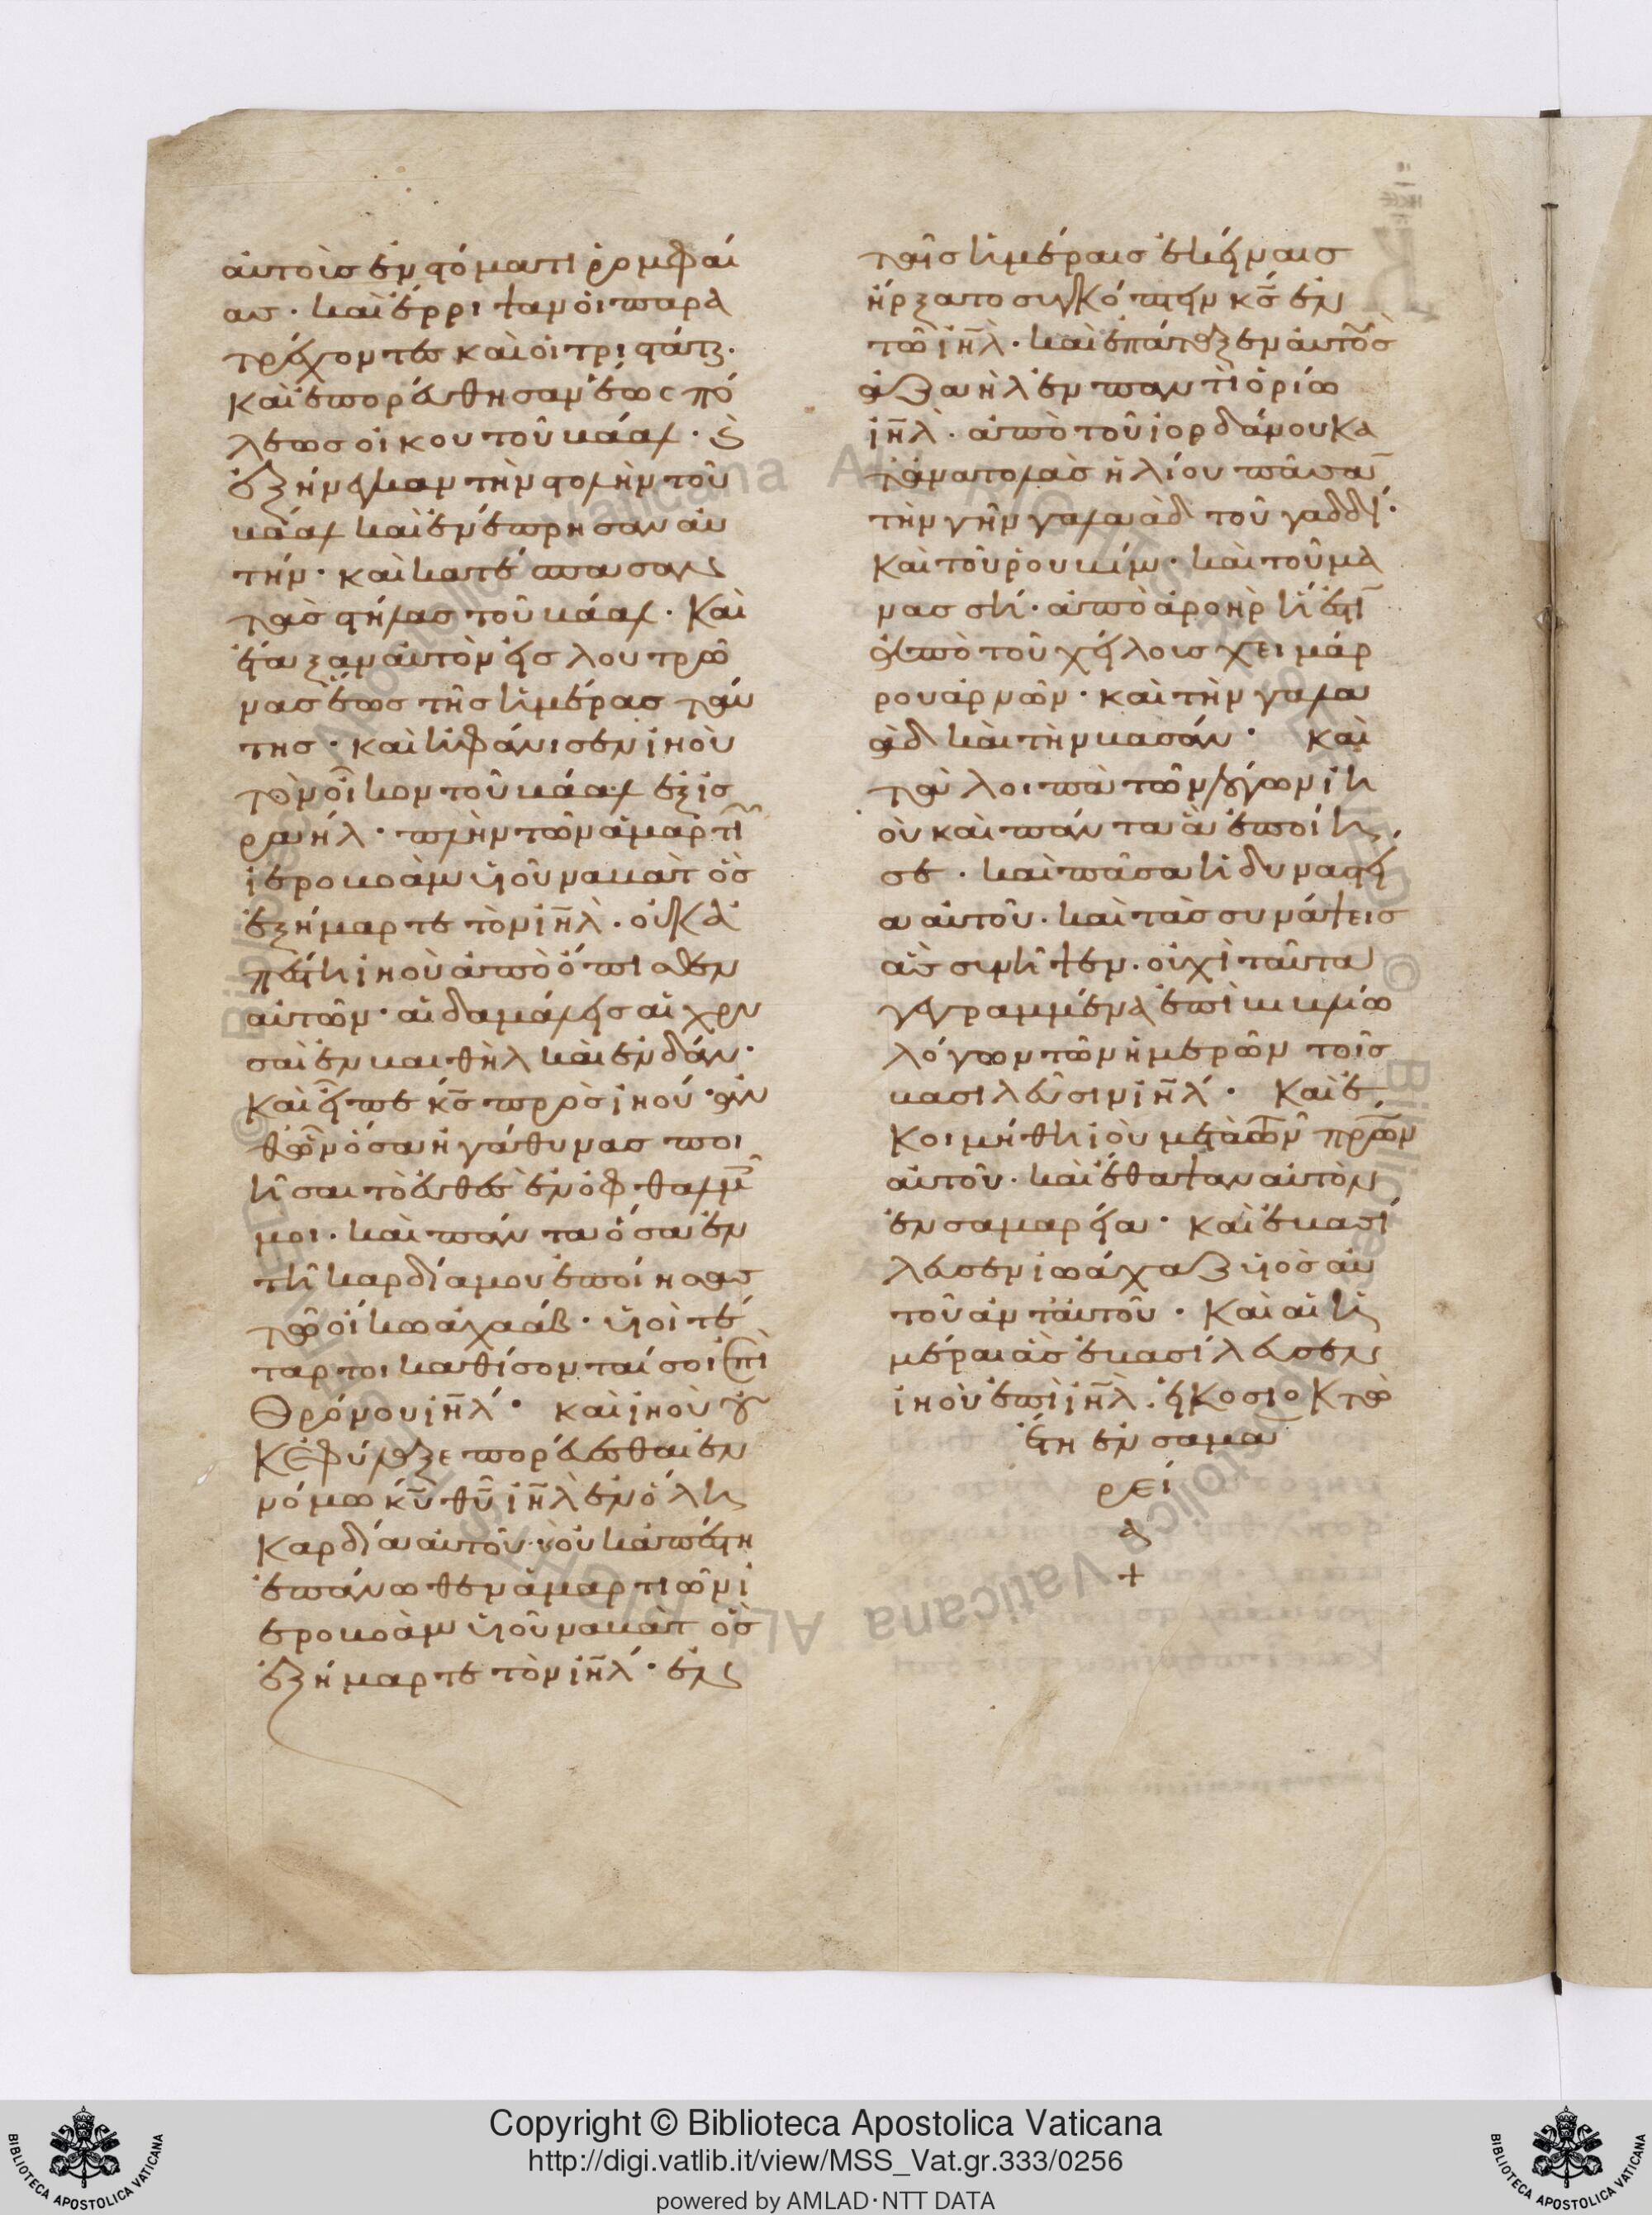 αὐτοὺς ἐν στόματι ῥομφαί
ας · καὶ ἔρριψαν οἱ παρα
τρέχοντες καὶ οἱ τριστάται ·
καὶ ἐπορεύθησαν ἕως πό
λεως οἴκου τοῦ βάαλ · καὶ
ἐξήνεγκαν τὴν στολὴν τοῦ
βάαλ καὶ ἐνέπρησαν αὐ
τήν · καὶ κατέσπασαν
τὰς στήλας τοῦ βάαλ · Καὶ
ἔταξαν αὐτὸν εἰς λουτρῶ
νας ἕως τῆς ἡμέρας ταύ
της · καὶ ἠφάνισεν ἰηοὺ
τὸν οἶκον τοῦ βάαλ ἐξ ισ
ραήλ · πλὴν τῶν ἁμαρτι
ἱεροβοὰμ υἱοῦ ναβὰτ ὃς
ἐξήμαρτε τὸν ιη̅λ · οὐκ ἀ
πέστη ἰηοὺ ἀπὸ ὄπισθεν
αὐτῶν · αἱ δαμάλεις αἱ χρυ
σαῖ ἐν βαιθὴλ καὶ ἐν δάν ·
Καὶ εἶπε κς̅ πρὸς ἰηού · ἀν
θ' ὧν ὅσα ἠγάθυνας ποι
ῆσαι τὸ εὐθὲς ἐν ὀφθαλμ
μοι · καὶ πάντα ὅσα ἐν
τῆ καρδία μου ἐποίησας
τῶ οἴκω ἀχαάβ · υἱοὶ τέ
ταρτοι καθίσονταί σοι ἐπὶ
Θρόνου ιη̅λ · καὶ ἰηοὺ οὐ
κ ἐφύλαξε πορεύεσθαι ἐν
νόμω κυ̅ θυ̅ ιη̅λ ἐν ὅλη
καρδία αὐτοῦ · οὐκ ἀπέστη
ἐπάνωθεν ἁμαρτιῶν ἱ
εροβοὰμ υἱοῦ ναβὰτ ὃς
ἐξήμαρτε τὸν ιη̅λ · ἐν
ταῖς ἡμέραις ἐκείναις
ἤρξατο συγκόπτειν κς̅ ἐν
τῶ ιη̅λ · καὶ ἐπάταξεν αὐτοὺς
ἀζαὴλ ἐν παντὶ ὁρίω
ιη̅λ · ἀπὸ τοῦ ἰορδάνου κα
τ' ἀνατολὰς ἡλίου πᾶσαν
τὴν γῆν γαλαὰδ τοῦ γαδδί ·
καὶ τοῦ ῥουβίμ · καὶ τοῦ μα
νασσῆ · ἀπὸ ἀροὴρ ἥ ἐστι
ἐπὸ τοῦ χείλους χειμάρ
ρου ἀρνῶν · καὶ τὴν γαλα
ὰδ καὶ τὴν βασάν · καὶ
τὰ λοιπὰ τῶν λόγων ἰη
οὺ καὶ πάντα ἃ ἐποίη
σε · καὶ πᾶσα ἡ δυναστεί
α αὐτοῦ · καὶ τὰς συνάψεις
ἃς συνῆψεν · οὐχὶ ταῦτα
γεγραμμένα ἐπὶ βιβλίω
λόγων τῶν ἡμερῶν τοῖς
βασιλεῦσιν ιη̅λ · Καὶ ἐ
κοιμήθη ἰοὺ μετὰ τῶν πρων
αὐτοῦ · καὶ ἔθαψαν αὐτὸν
ἐν σαμαρεία · καὶ ἐβασί
λευσεν ἰωάχαζ υἱὸς αὐ
τοῦ ἀντ' αὐτοῦ · Καὶ αἱ ἡ
μέραι ἃς ἐβασίλευσεν
ἰηοὺ ἐπὶ ιη̅λ · εἰκοσιοκτὼ
ἔτη ἐν σαμα
ρεί
α
+
Copyright © Biblioteca Apostolica Vaticana
http://digi.vatlib.it/view/MSS_Vat.gr.333/0256
powered by AMLAD·NTT DATA